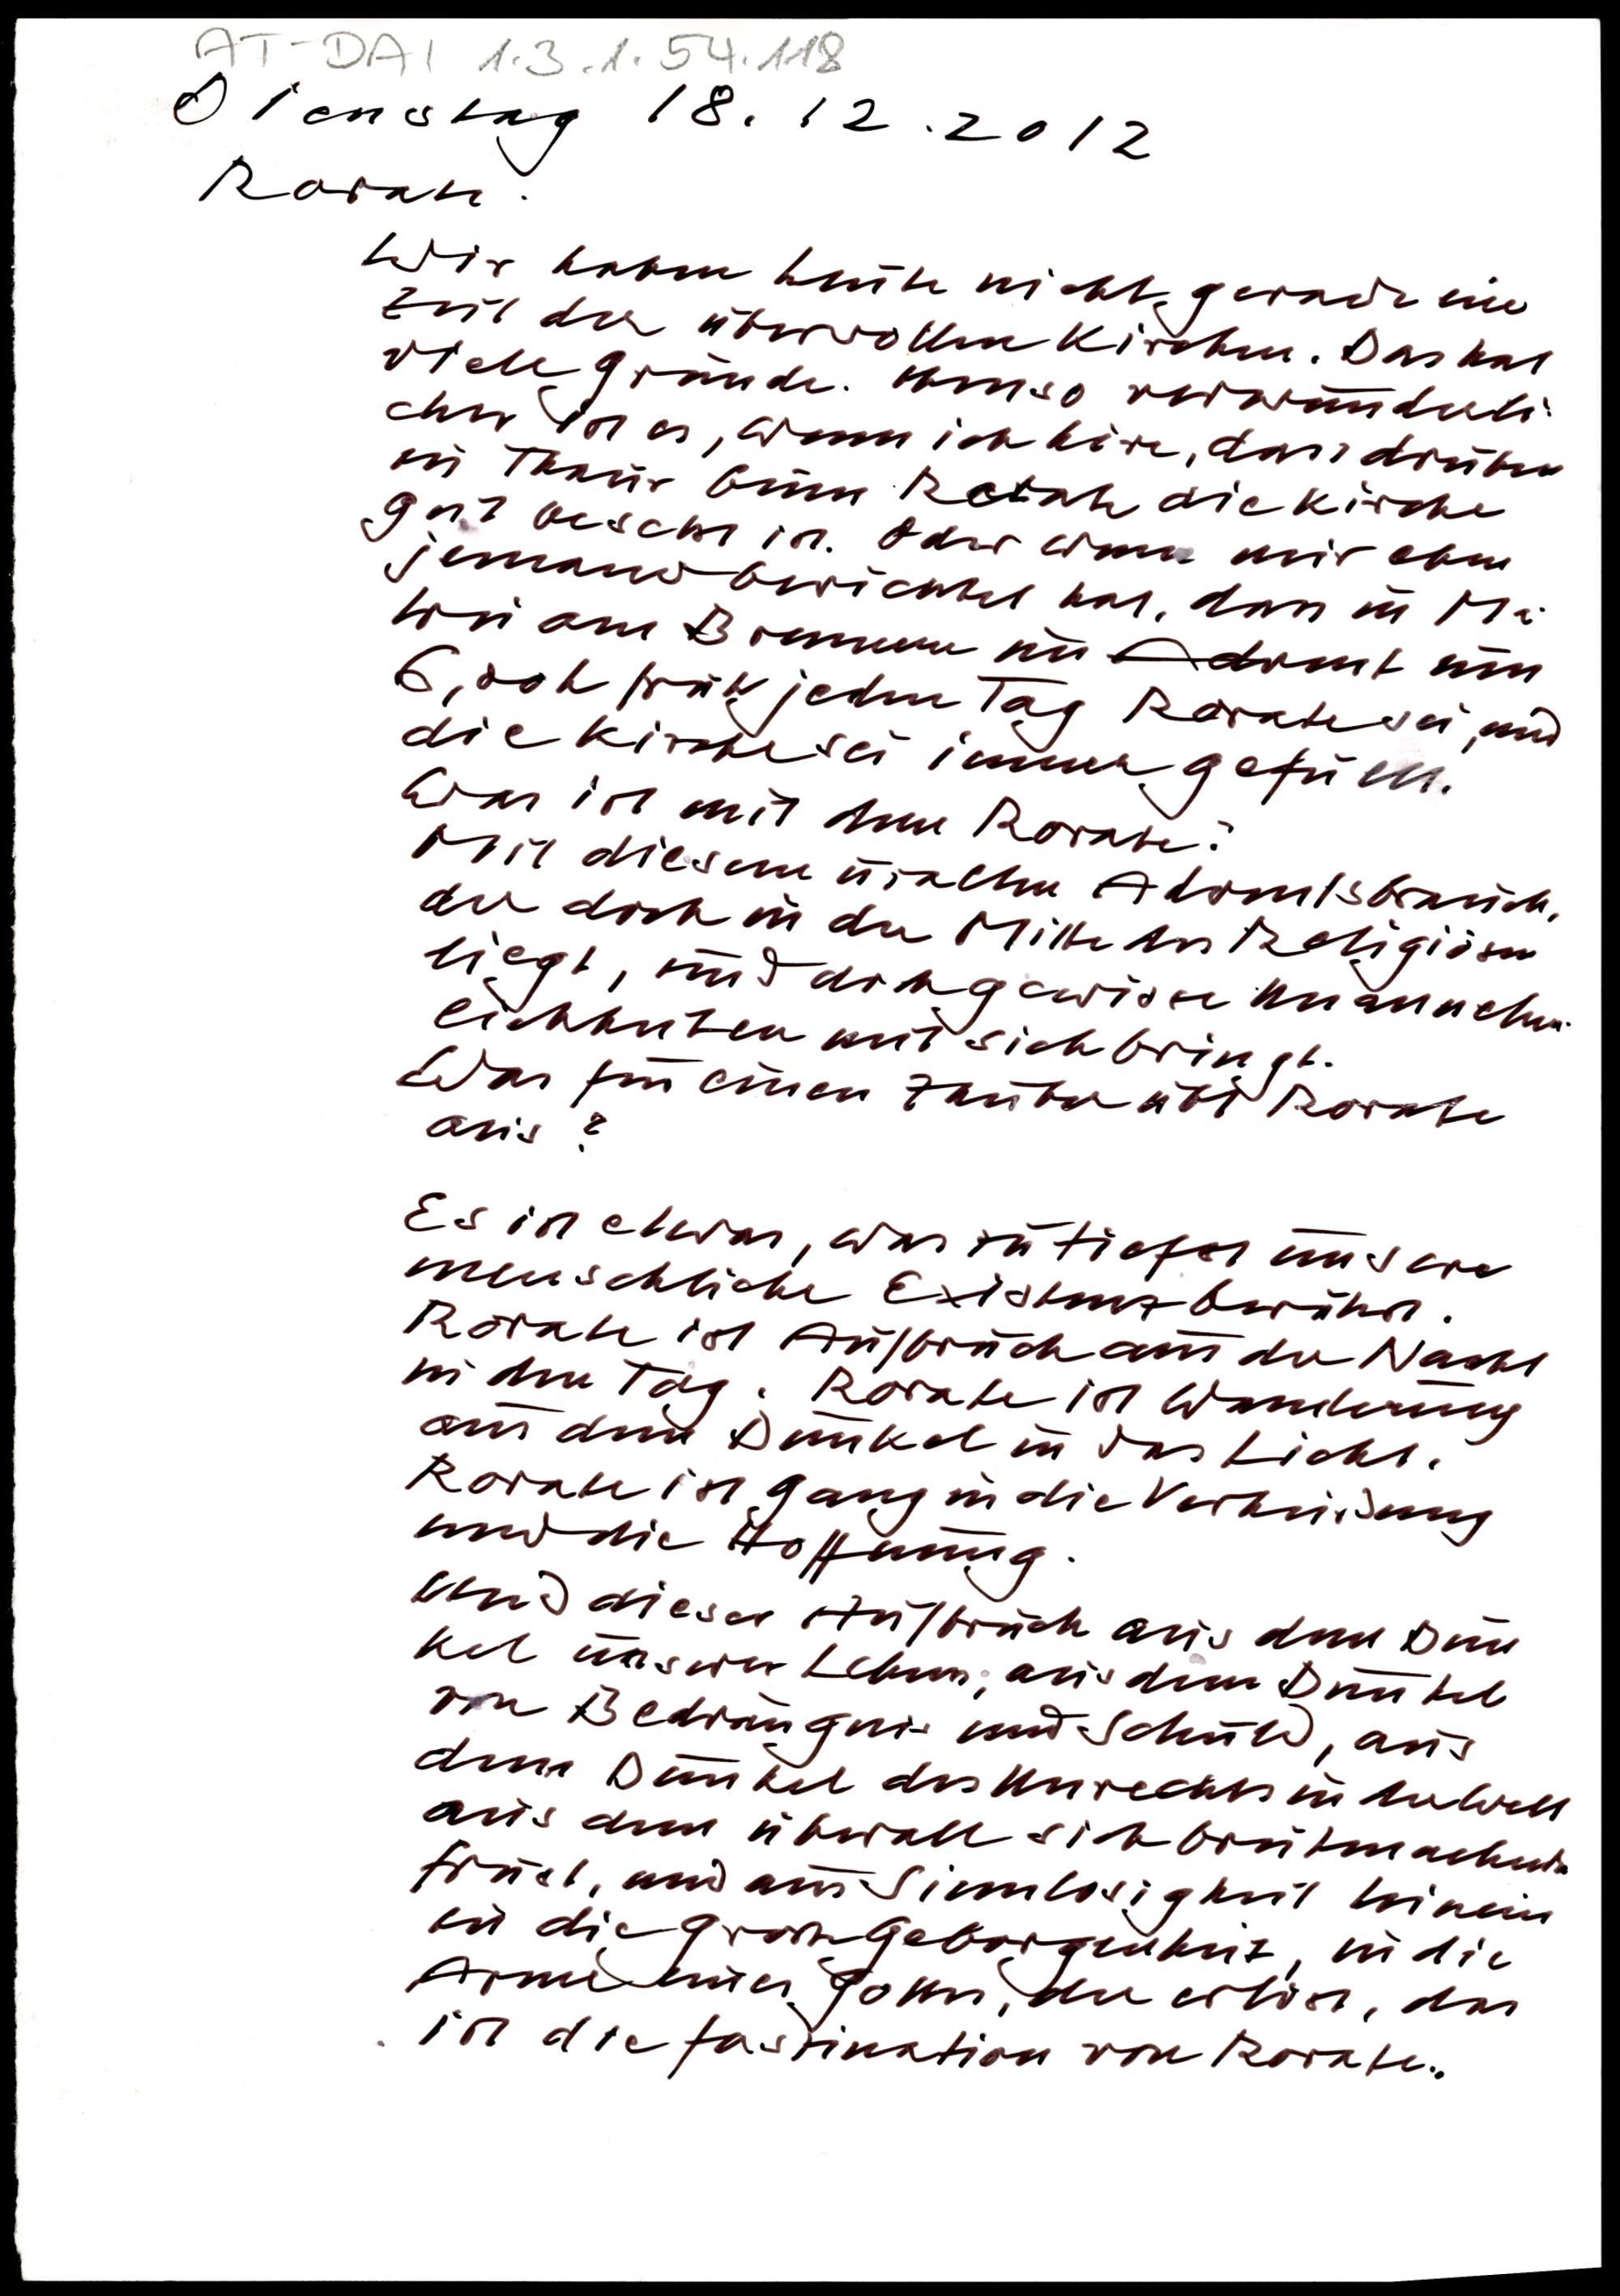 AT-DAI 1.3.1.54.118
Dienstag 18.12.2012
Rorate.
Wir haben heute nicht gerade eine
Zeit der übervollen Kirchen. Das hat
viele Gründe. Umso verwunderli-
cher ist es, wenn ich höre, dass drüben
in Thaur beim Rorate die Kirche
gut besetzt ist. Oder wenn mir eben
jemand berichtet hat, dass in Ma-
trei am Brenner im Advent um
6,00h früh jeden Tag Rorate sei, und
die Kirche sei immer gefüllt.
Was ist mit dem Rorate?
Mit diesem uralten Adventsbrauch,
der doch in der Mitte des Religiösen
liegt, und doch gewisse Unannehm-
lichkeiten mit sich bringt.
Was für einen Zauber übt Rorate
aus?
Es ist etwas, was zutiefst unsere
menschliche Existenz berührt.
Rorate ist Aufbruch aus der Nacht
in den Tag. Rorate ist Wanderung
aus dem Dunkel in das Licht.
Rorate ist Gang in die Verheißung
und die Hoffnung.
Und dieser Aufbruch aus dem Dun
kel unseres Lebens, aus dem Dunkel
von Bedrängnis und Schuld, aus
dem Dunkel des Unrechts in der Welt
aus dem überall sich breitmachenden
Frust, und aus Sinnlosigkeit hinein
in die große Geborgenheit, in die
Arme eines Gottes, der erlöst, das
ist die Faszination von Rorate.